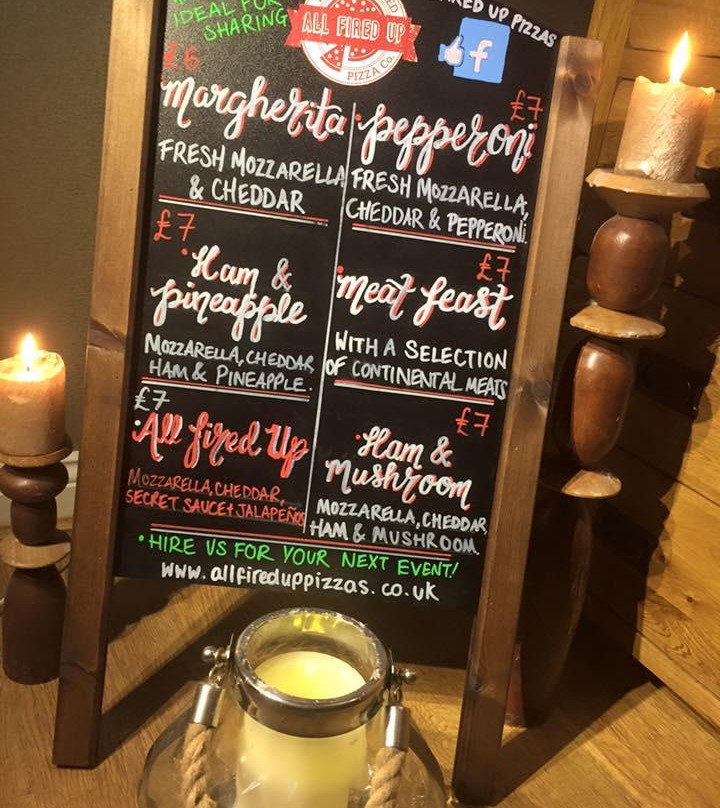 IDEAL FOR
SHARING
ALL FIRED UP
PIZZA Co.
FIRED UP PIZZAS
f
£6
Margherita
FRESH MOZZARELLA
& CHEDDAR
£7
pepperoni
FRESH MOZZARELLA,
CHEDDAR & PEPPERONI.
£7
Ham &
pineapple
MOZZARELLA, CHEDDAR,
HAM & PINEAPPLE.
£7
meat feast
WITH A SELECTION
OF CONTINENTAL MEATS
£7
All fired Up
MOZZARELLA, CHEDDAR,
SECRET SAUCE + JALAPEÑOS
£7
Ham &
Mushroom
MOZZARELLA, CHEDDAR,
HAM & MUSHROOM.
• HIRE US FOR YOUR NEXT EVENT!
www.allfireduppizzas.co.uk